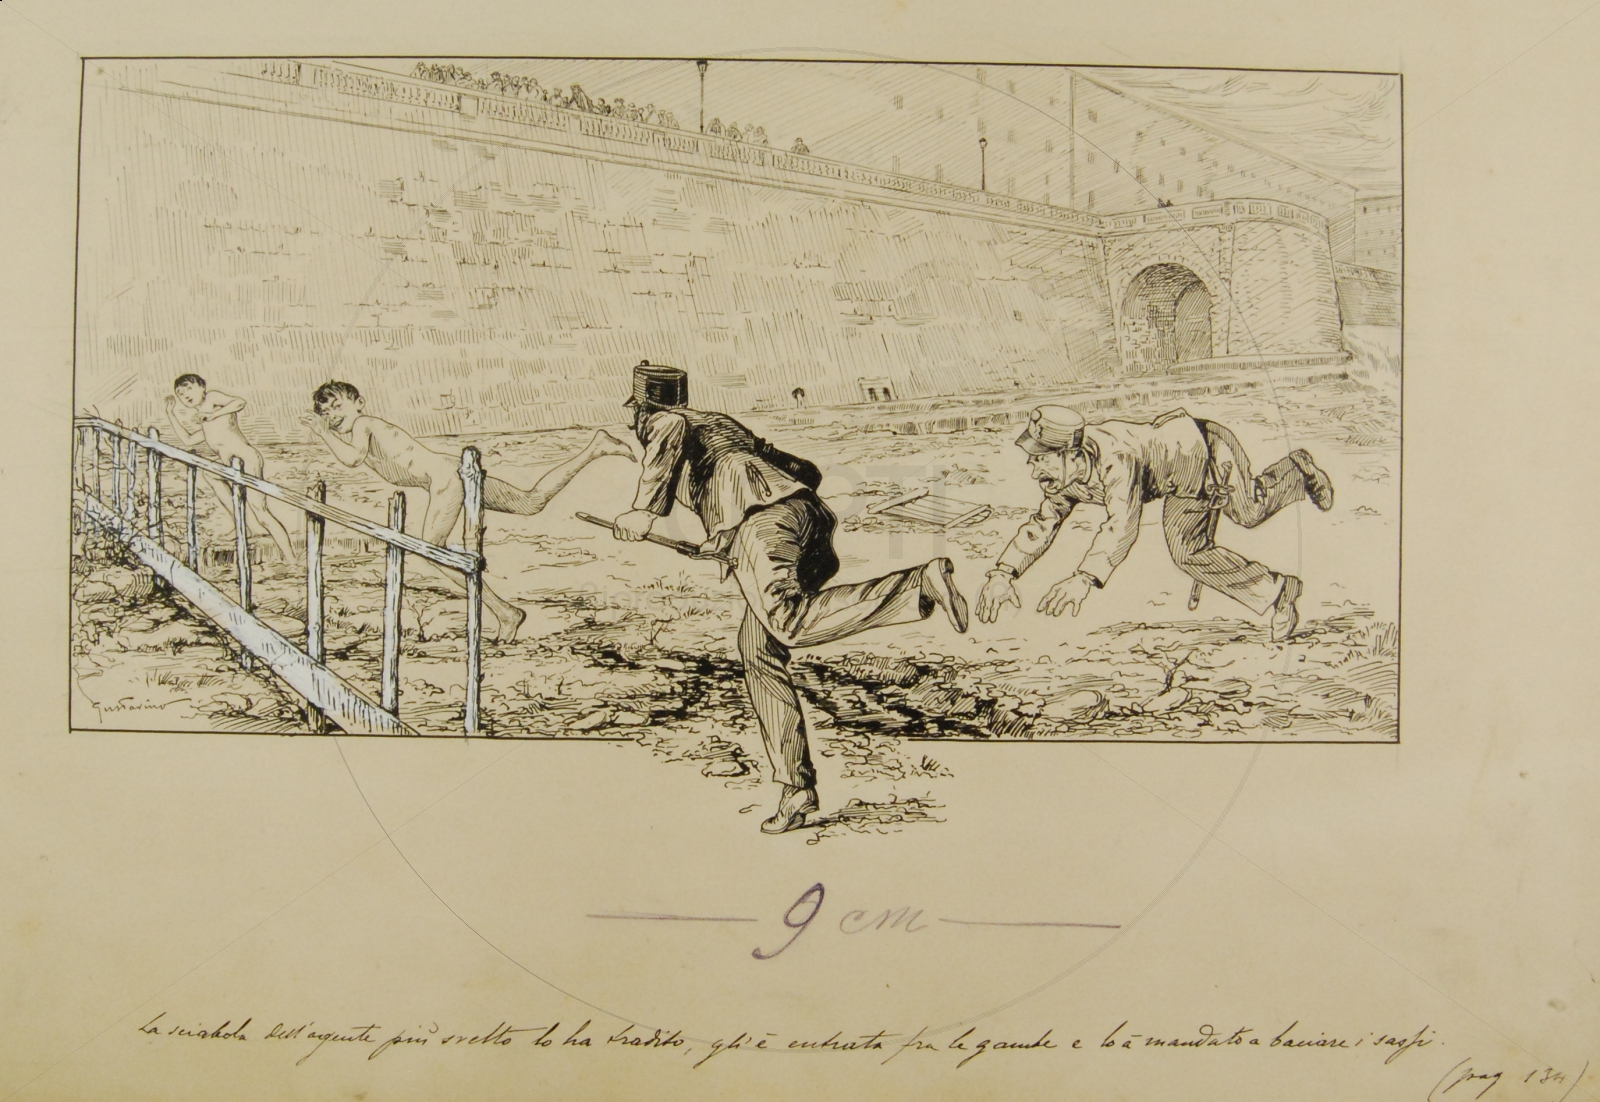 Gustavino
9 cm
La sciabola dell'agente più svelto lo ha tradito, gli è entrata fra le gambe e lo à mandato a baciare i sassi.
(pag 134)